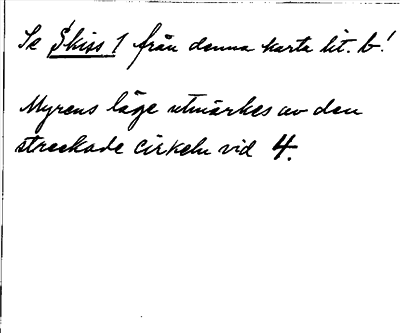 Se Skiss 1 från denna karta lit. b!
Myrens läge utmärkes av den
streckade cirkeln vid 4.